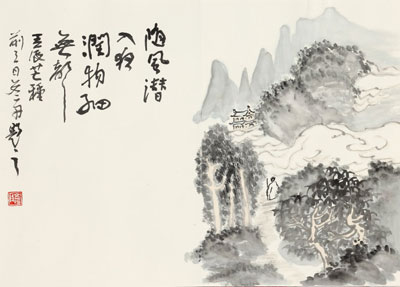 随风潜
入夜
润物细
无声
壬辰芒种
前三日